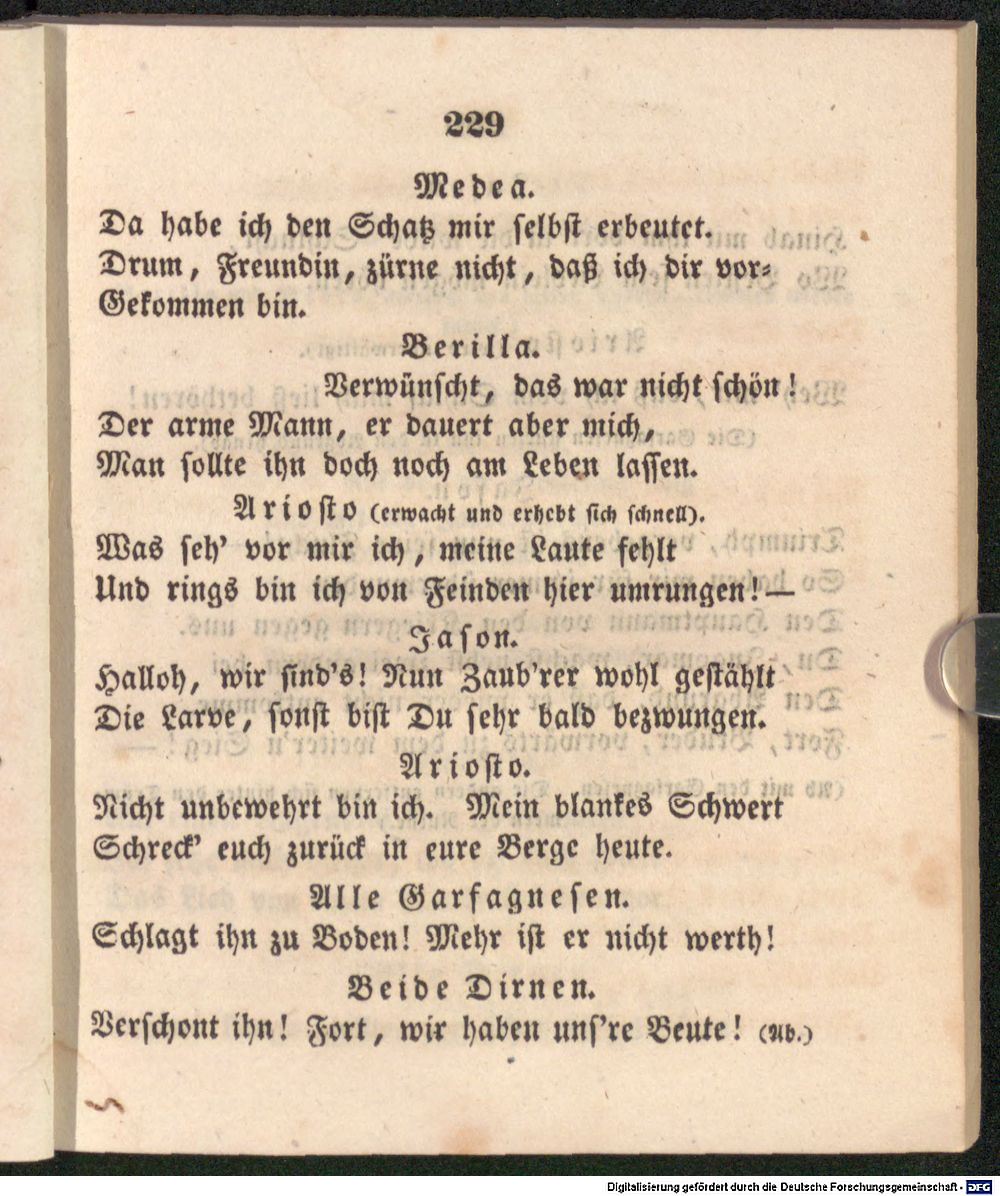 229
Medea.
Da habe ich den Schatz mir selbst erbeutet.
Drum, Freundin, zürne nicht, daß ich dir vor-
Gekommen bin.
Berilla.
Verwünscht, das war nicht schön!
Der arme Mann, er dauert aber mich,
Man sollte ihn doch noch am Leben lassen.
Ariosto (erwacht und erhebt sich schnell).
Was seh' vor mir ich, meine Laute fehlt
Und rings bin ich von Feinden hier umrungen!—
Jason.
Halloh, wir sind's! Nun Zaub'rer wohl gestählt
Die Larve, sonst bist Du sehr bald bezwungen.
Ariosto.
Nicht unbewehrt bin ich. Mein blankes Schwert
Schreck' euch zurück in eure Berge heute.
Alle Garfagnesen.
Schlagt ihn zu Boden! Mehr ist er nicht werth!
Beide Dirnen.
Verschont ihn! Fort, wir haben uns're Beute! (Ab.)
Digitalisierung gefördert durch die Deutsche Forschungsgemeinschaft - DFG